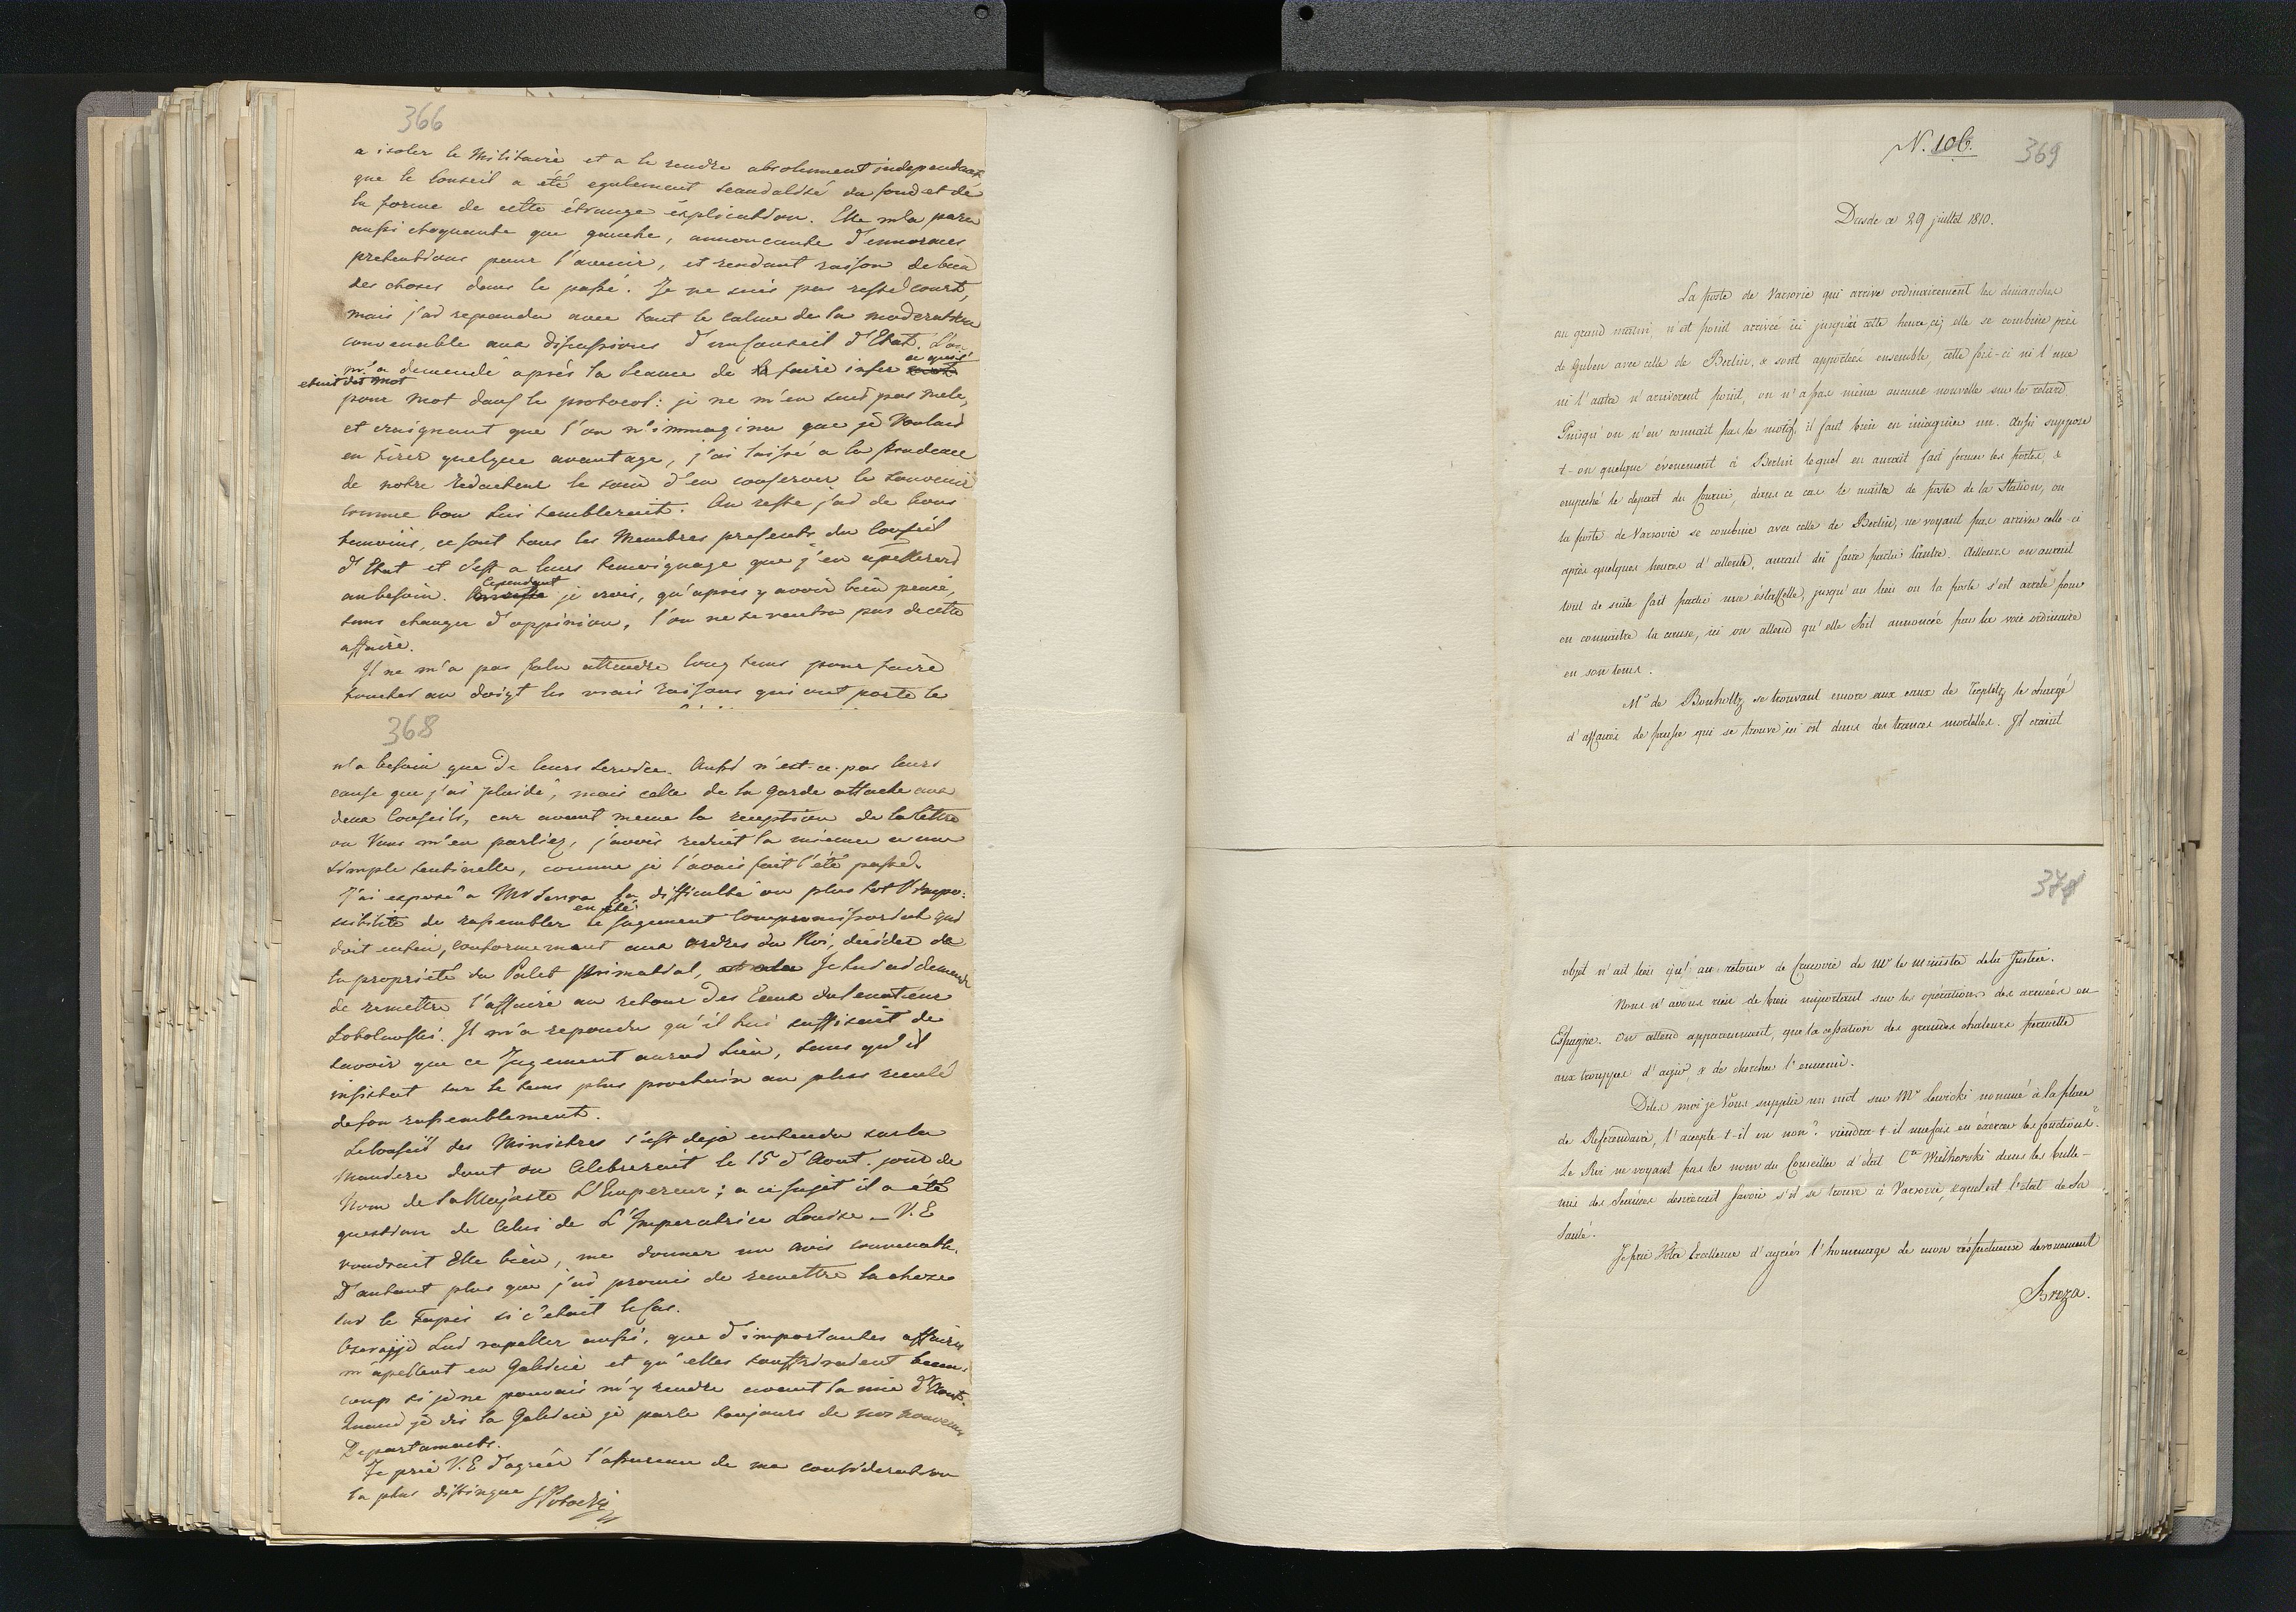 366
a isoler le Militaire et a le rendre absolument independant
que le Conseil a été egalement scandalisé du fond et de
la forme de cette étrange éxplication. Elle m'a paru
aussi choquante que gauche, annoncante d'ennormes
pretentions pour l'avenir, et rendant raison de bien
des choses dans le passé. Je ne suis pas resté court,
mais j'ai repondu avec tout le calme de la moderation
convenable aux discussions d'un Conseil d'Etat. L'on
m'a demendé après la seance de faire inser ce qui s'
etait dit mot
pour mot dans le protocol: je ne m'en suis pas mele,
et craignant que l'on n'immagina que je voulais
en tirer quelque avantage, j'ai laissé a la prudence
de notre redacteur le soin d'en conserver le souvenir
comme bon lui semblerait. Au reste j'ai de bons
temoins, ce sont tous les Membres presents du Conseil
d'Etat et c'est a leurs temoignage que j'en apellerai
au besoin. Cependant je crois, qu'après y avoir bien pensé,
sans changer d'oppinion, l'on ne se ventra pas de cette
affaire.
Il ne m'a pas falu attendre long tems pour faire
toucher au doigt les vrais raisons qui ont porté le
368
n'a besoin que de leurs service. Aussi n'est-ce pas leurs
cause que j'ai plaidé, mais celle de la garde attaché aux
deux Conseils, car avant meme la reception de la lettre
ou Vous m'en parliez, j'avois reduit la mienne a une
simple sentinelle, comme je l'avais fait l'été passé.
J'ai exposé a Mr Senra la difficulté ou plus tot l'impos:
sibilité de rassembler en été le jugement Compromissorial qui
doit enfin, conformement aux ordres du Roi, decider de
la propriété du Palet Primatial, Je lui ai demandé
de remettre l'affaire au retour des Eaux du Senateur
Sobolewski. Il m'a repondu qu'il lui suffisait de
savoir que ce Jugement aurai lieu, sans qu'il
insistat sur le tems plus prochain au plus reculé
de son rassemblement.
Le Conseil des Ministres s'est deja entendu sur la
maniere dont on Celebrerait le 15 d'Aout. jour de
Nom de Sa Majeste L'Empereur; a ce sujet il a été
question de Celui de L'Imperatrice Louise – V.E
voudrait Elle bien, me donner un avis convenable.
D'autant plus que j'ai promis de remettre la chose
sur le Tapis si c'était le Cas.
Oserai je Lui rapeller aussi, que d'importantes affaires
m'apellent en Galicie et qu'elles souffriraient beau:
coup si je ne pouvais m'y rendre avant la mie d'Aout.
Quand je dis la Galicie je parle toujours de nos nouveaux
Departaments.
Je prie V.E d'agréer l'assurence de ma consideration
la plus distingue SPotocki
N. 106.
369
Dresde ce 29 juillet 1810.
La poste de Varsovie qui arrive ordinairement les dimanches
au grand matin n'est point arrivée ici jusqu'à cette heure ci; elle se combine près
de Guben avec celle de Berlin, & sont apportées ensemble, cette fois-ci ni l'une
ni l'autre n'arriverent point, on n'a pas même aucune nouvelle sur le retard
Puisqu'on n'en connait pas le motif, il faut bien en imaginer un. Aussi suppose
t-on quelque évenement à Berlin lequel en aurait fait fermer les portes, &
empeché le depart du Courier, dans ce cas le maitre de poste de la Station, ou
la poste de Varsovie se combine avec celle de Berlin, ne voyant pas arriver celle-ci
après quelques heures d'attente, aurait dû faire partir l'autre. Ailleurs on aurait
tout de suite fait partir une éstaffette, jusqu'au lieu ou la poste s'est arretée pour
en connaitre la cause, ici on attend qu'elle soit annoncée par la voie ordinaire
en son tems.
Mr de Bouholtz se trouvant encore aux eaux de Toeplitz le chargé
d'affaires de prusse qui se trouve ici est dans des trances mortelles. Il craint
371
objet n'ait lieu qu'au retour de Cracovie de Mr le ministre de la Justice.
Nous n'avons rien de bien important sur les opérations des armées en
Espagne. On attend apparemment, que la cessation des grandes chaleurs permette
aux trouppes d'agir, & de chercher l'ennemi.
Dites moi je Vous supplie un mot sur Mr Lewicki nommé à la place
de Referendaire, l'accepte-t-il ou non? viendra-t-il une fois en éxercer les fonctions?
Le Roi ne voyant pas le nom du Conseiller d'état Cte Wielhorski dans les bulle-
tins des Seances desirerait savoir s'il se trouve à Varsovie, & quel est l'état de Sa
Santé.
Je prie Votre Excellence d'agréer l'hommage de mon réspectueux devouement
Breza.